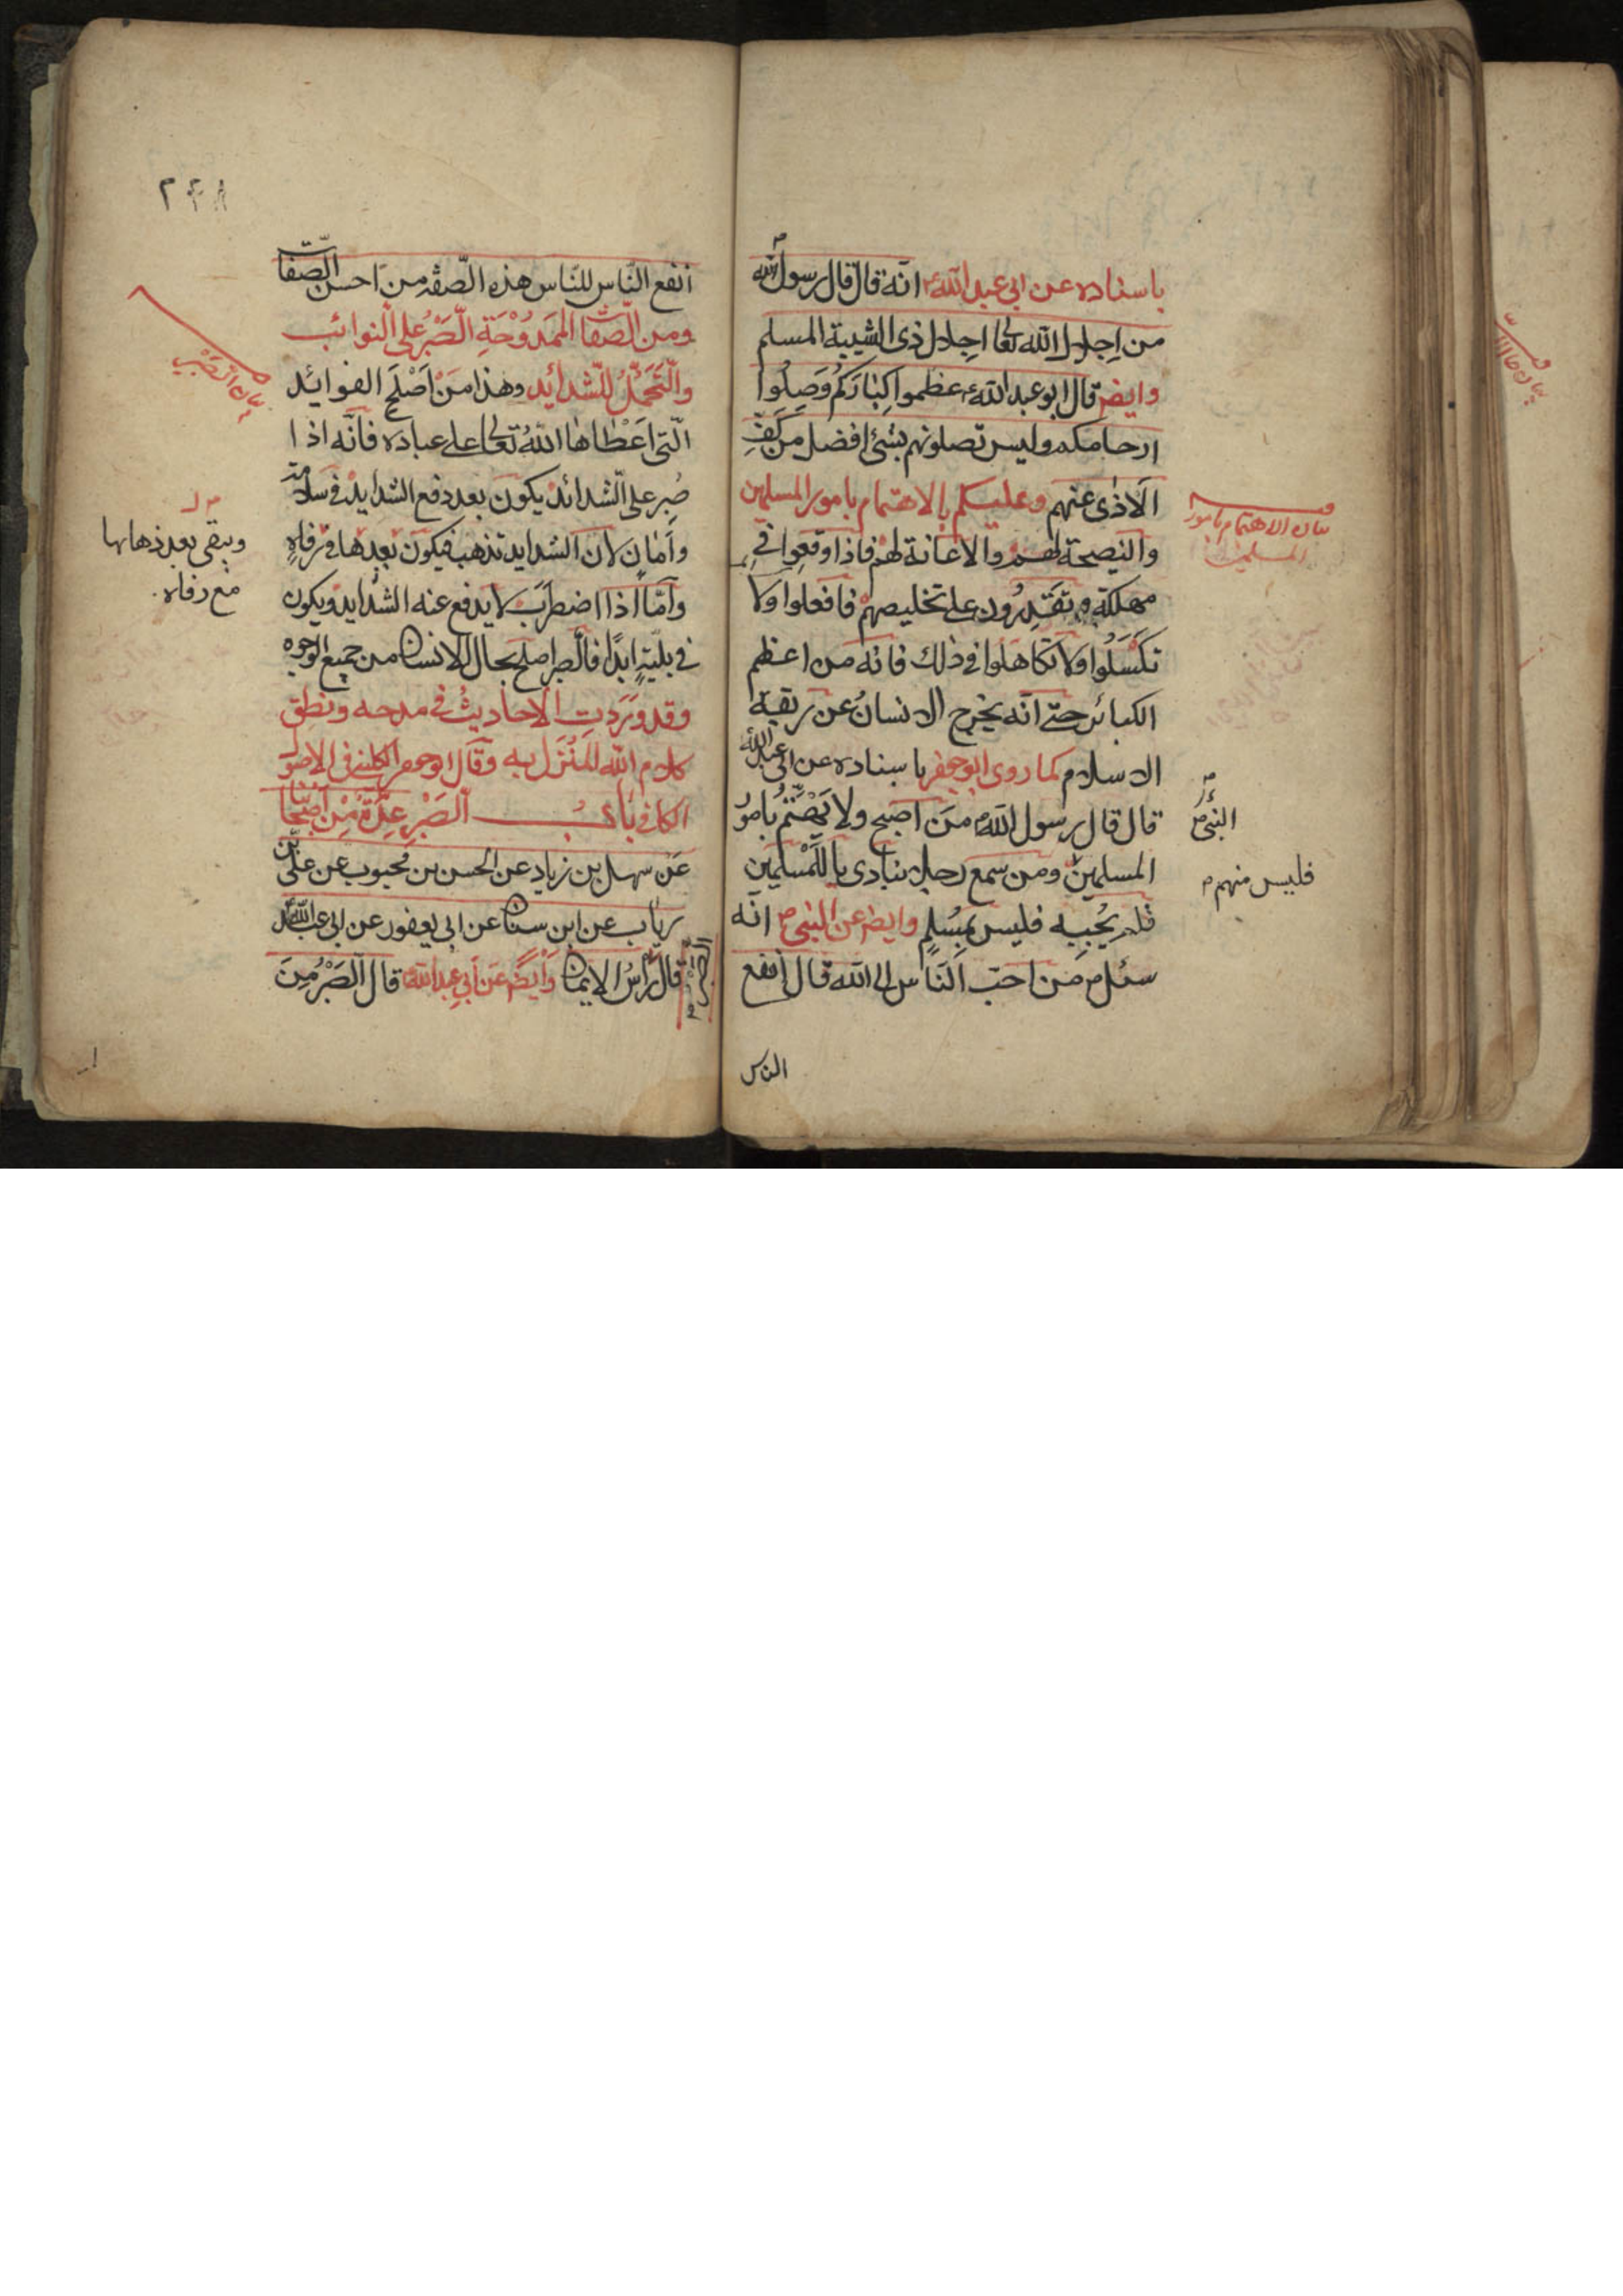 باسناده عن ابي عبد الله ع انه قال قال رسول الله ص
من اجلال الله تعا اجلال ذي الشيبة المسلم
وايض قال ابو عبد الله ع عظموا كباركم وصلوا
ارحامكم وليس تصلونهم بشئ افضل من كف
الاذى عنهم وعليكم بالاهتمام بامور المسلمين
والنصيحة لهم والاعانة لهم فاذا وقعوا في
مهلكة وتقدرون على تخليصهم فافعلوا ولا
تكسلوا ولا تكاهلوا في ذلك فانه من اعظم
الكبائر حتى انه يخرج الانسان عن ربقة
الاسلام كما روى ابو جعفر باسناده عن ابي عبد الله ع
قال قال رسول الله ص من اصبح ولا يهتم بامور
المسلمين ومن سمع رجلا ينادي يا للمسلمين
فلم يجبه فليس بمسلم وايض عن النبي ص انه
سئل من احب الناس الى الله قال انفع
الناس
بيان الاهتمام بامور
المسلمين
النبي ص
فليس منهم
٢٤٨
انفع الناس للناس هذه الصفة من احسن الصفات
ومن الصفات الممدوحة الصبر على النوائب
والتحمل للشدائد وهذا من اصلح الفوائد
التي اعطاها الله تعالى على عباده فانه اذا
صبر على الشدائد يكون بعد دفع الشدايد في سلامة
وامان لان الشدايد تذهب فيكون بعدها في رفاه
واما اذا اضطرب لا يدفع عنه الشدايد ويكون
في بلية ابدا فالصبر اصلح بحال الانسان من جميع الوجوه
وقد وردت الاحاديث في مدحه ونطق
كلام الله المنزل به وقال ابو جعفر الكليني في الاصول
الكافي باب الصبر عدة من اصحابنا
عن سهل بن زياد عن الحسن بن محبوب عن علي بن
رياب عن ابن سنان عن ابي يعفور عن ابي عبد الله ع
قال راس الايمان وايض عن ابي عبد الله ع قال الصبر من
بيان الصبر
ويبقى بعد ذهابها
مع رفاه
الصبر